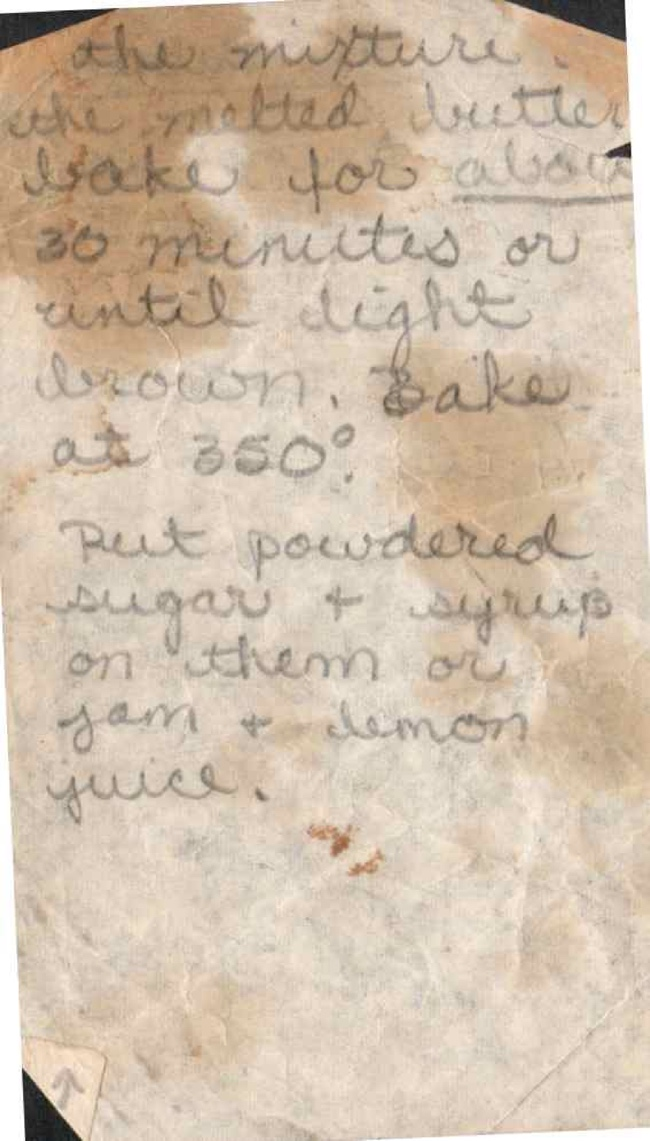 the mixture.
the melted butter
bake for abou
30 minutes or
until light
brown. Bake
at 350°.
Put powdered
sugar + syrup
on them or
jam + lemon
juice.
↑